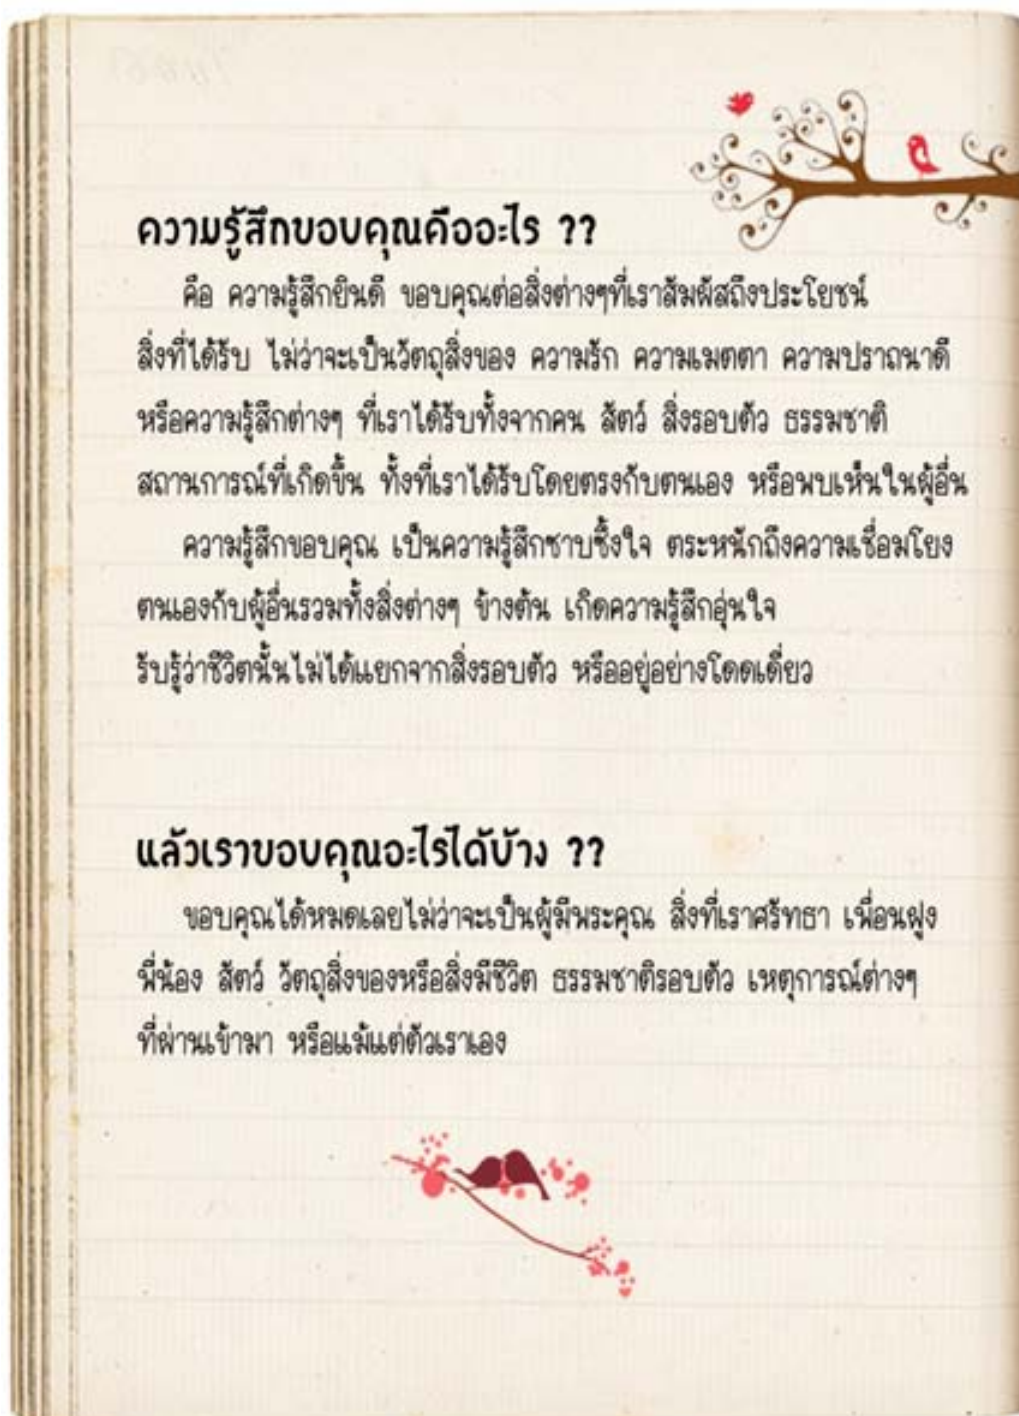 ความรู้สึกขอบคุณคืออะไร ??
คือ ความรู้สึกยินดี ขอบคุณต่อสิ่งต่างๆที่เราสัมผัสถึงประโยชน์
สิ่งที่ได้รับ ไม่ว่าจะเป็นวัตถุสิ่งของ ความรัก ความเมตตา ความปราถนาดี
หรือความรู้สึกต่างๆ ที่เราได้รับทั้งจากคน สัตว์ สิ่งรอบตัว ธรรมชาติ
สถานการณ์ที่เกิดขึ้น ทั้งที่เราได้รับโดยตรงกับตนเอง หรือพบเห็นในผู้อื่น
ความรู้สึกขอบคุณ เป็นความรู้สึกซาบซึ้งใจ ตระหนักถึงความเชื่อมโยง
ตนเองกับผู้อื่นรวมทั้งสิ่งต่างๆ ข้างต้น เกิดความรู้สึกอุ่นใจ
รับรู้ว่าชีวิตนั้นไม่ได้แยกจากสิ่งรอบตัว หรืออยู่อย่างโดดเดี่ยว
แล้วเราขอบคุณอะไรได้บ้าง ??
ขอบคุณได้หมดเลยไม่ว่าจะเป็นผู้มีพระคุณ สิ่งที่เราศรัทธา เพื่อนฝูง
พี่น้อง สัตว์ วัตถุสิ่งของหรือสิ่งมีชีวิต ธรรมชาติรอบตัว เหตุการณ์ต่างๆ
ที่ผ่านเข้ามา หรือแม้แต่ตัวเราเอง